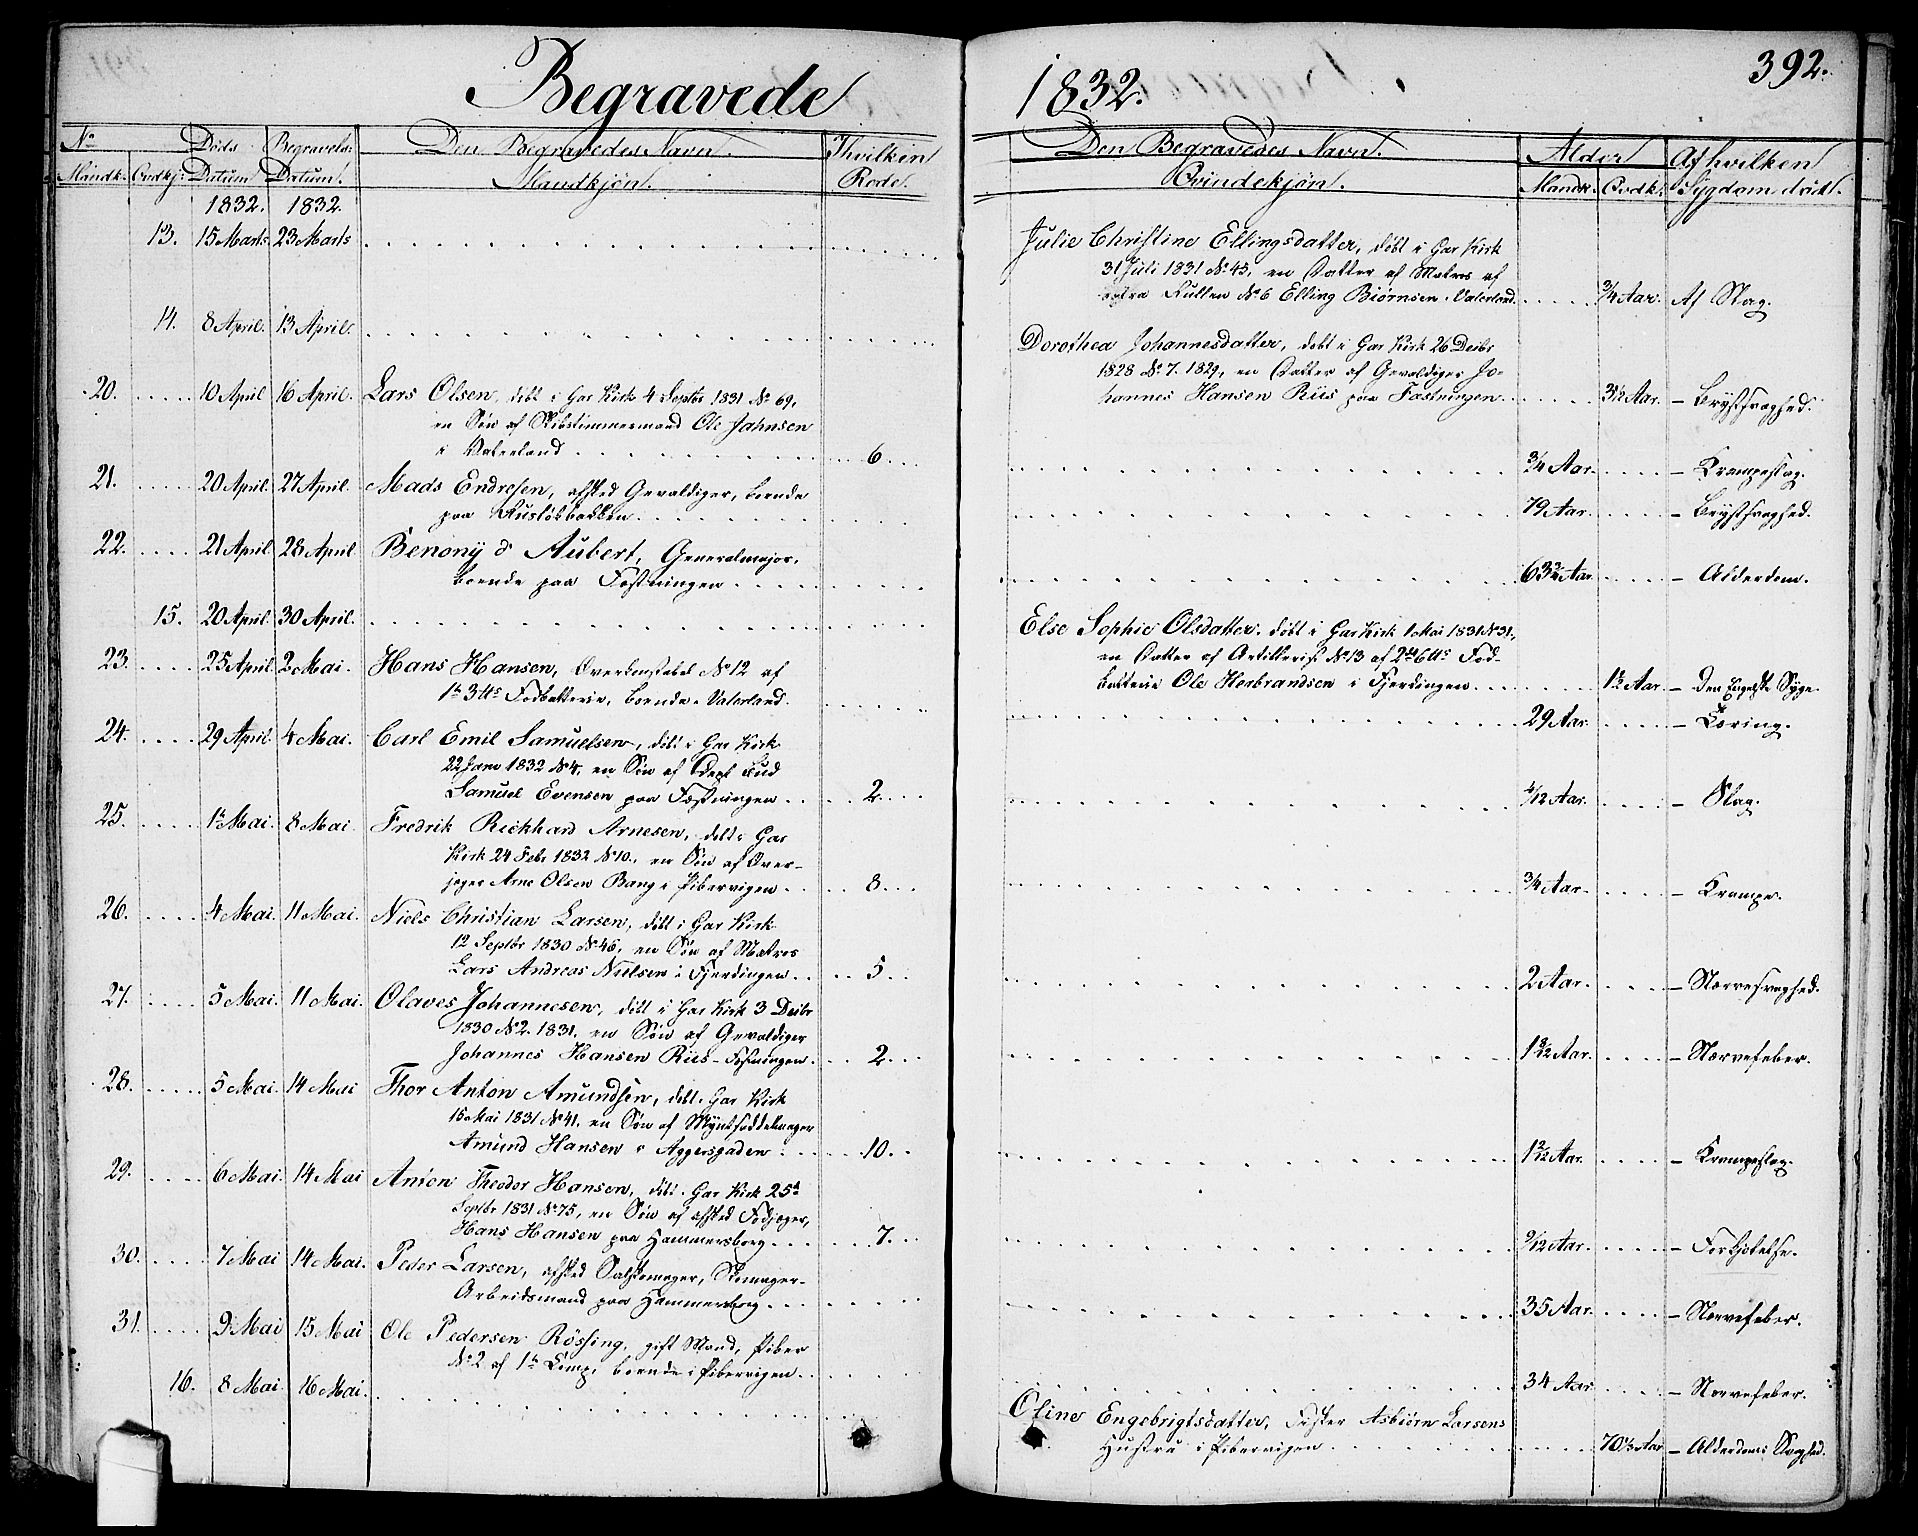 Begravede
1832.
392.
No Døds Begravels: Den Begravedes Navn. I hvilken
Mandk. Qvdkj: Datum Datum. Mandkjøn. Rode.
Den Begravedes Navn. Alder Af hvilken
Qvindekjøn. Mandk. Qvdk. Sygdom død.
1832. 1832.
13. 15 Marts 23 Marts
Julie Christine Ellingsdatter, døbt i Gar Kirk
31 Juli 1831 No 45, en Datter af Matros af
extra Rullen No 6 Elling Biørnsen i Vaterland. 3/4 Aar. Af Slag.
14. 8 April. 13 April.
Dorothea Johannesdatter, døbt i Gar Kirk 26 Decbr
1828 No 7. 1829, en Datter af Gevaldiger Jo-
hannes Hansen Riis paa Fæstningen. 3 1/2 Aar. – Brystsvaghed.
20. 10 April 16 April. Lars Olsen, døbt i Gar Kirk 4 Septbr 1831 No 69,
en Søn af Skibstimmermand Ole Jahnsen
i Vaterland 6 3/4 Aar. – Krampeslag.
21. 20 April. 27 April. Mads Endresen, afsked Gevaldiger, boende
paa Rusløkbakken. 79 Aar. – Brystsvaghed.
22. 21 April 28 April Benony d'Aubert, Generalmajor,
boende paa Fæstningen 63 3/4 Aar. – Alderdom.
15. 20 April. 30 April.
Else Sophie Olsdatter. døbt i Gar Kirk 1 Mai 1831 No 31,
en Datter af Artillerist No 13 af 2de 6 Us Fod-
batterie Ole Herbrandsen i Fjerdingen 1 Aar. – Den Engelske Syge.
23. 25 April. 2 Mai. Hans Hansen, Overkonstabel No 12 af
1te 3 Us Fodbatterie, boende i Vaterland. 29 Aar. – Tæring.
24. 29 April. 4 Mai. Carl Emil Samuelsen, døbt i Gar Kirk
22 Janu 1832 No 4, en Søn af
Samuel Evensen paa Fæstningen 2. 4/12 Aar. – Slag.
25. 1te Mai. 8 Mai. Fredrik Rickhard Arnesen, døbt i Gar
Kirk 24 Febr 1832 No 10., en Søn af Over-
jæger Arne Olsen Bang i Pibervigen 8. 3/4 Aar. – Krampe.
26. 4 Mai. 11 Mai. Niels Christian Larsen, døbt i Gar Kirk
12 Septbr 1830 No 46, en Søn af Matros
Lars Andreas Nielsen i Fjerdingen 5. 2 Aar. – Nervesvaghed.
27. 5 Mai. 11 Mai. Olaves Johannesen, døbt i Gar Kirk 3 Decbr
1830 No 2. 1831. en Søn af Gevaldiger
Johannes Hansen Riis – Fæstningen. 2. 1 Aar. – Nervefeber.
28. 5 Mai. 14 Mai Thor Anton Amundsen, døbt i Gar Kirk
15 Mai 1831 No 41. en Søn af
Amund Hansen i Aggersgaden 10. 1 Aar. – Krampeslag.
29. 6 Mai. 14 Mai Anton Theodor Hansen, døbt i Gar Kirk 25de
Septbr 1831 No 75, en Søn af afsked Fodjæger,
Hans Hansen paa Hammersborg 7. 9/12 Aar. – Forkjølelse.
30. 7 Mai 14 Mai. Peder Larsen, afsked Skomager-
Arbeidsmand paa Hammersborg 35 Aar. – Nervefeber.
31. 9 Mai 15 Mai Ole Pedersen Røssing, gift Mand, Piber
No 2 af 1te Comp. boende i Pibervigen 34 Aar – Nervefeber.
16. 8 Mai 16 Mai.
Oline Engebrigtsdatter, Asbiørn Larsens
Hustru i Pibervigen 70 1/3 Aar – Alderdoms Svaghed.